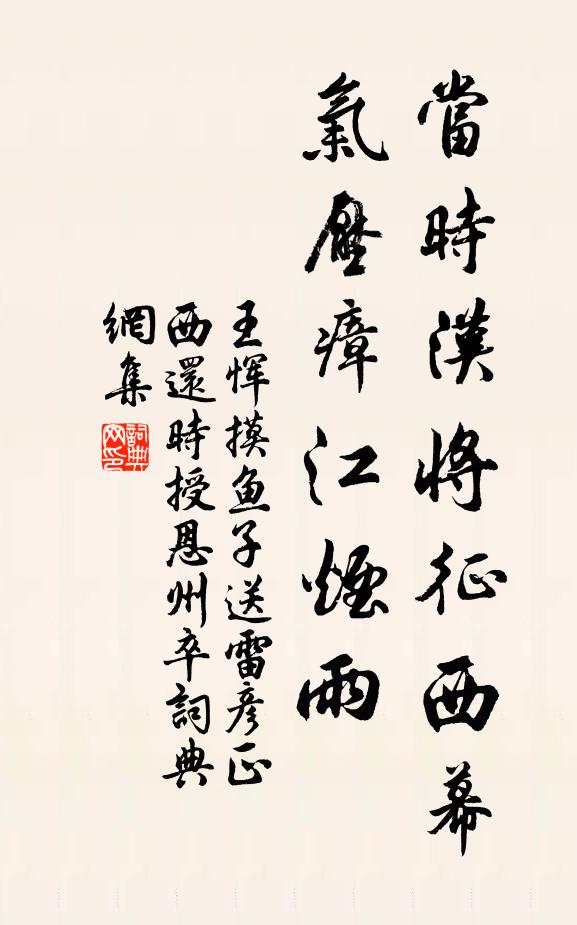 當時漢將征西幕
氣壓瘴江煙雨
王惲摸鱼子送雷彥正
西還時授恩州卒詞典
網集
詞典網印